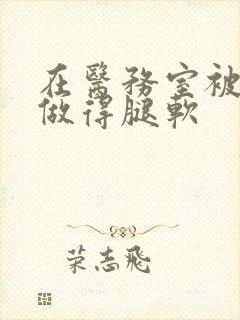 在醫務室被
做得腿軟
荣志飛